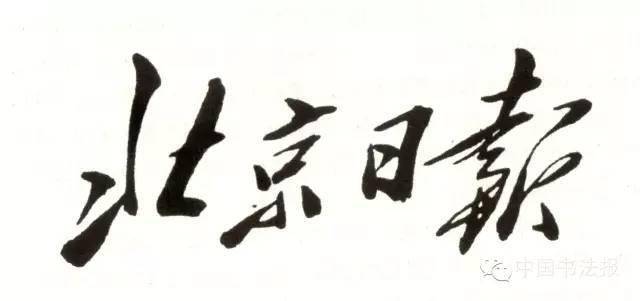 北京日報
中国书法报